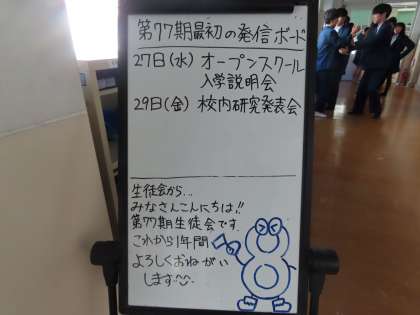 第77期最初の発信ボード
27日(水) オープンスクール
入学説明会
29日(金) 校内研究発表会
生徒会から...
みなさんこんにちは!!
第77期生徒会です。
これから1年間
よろしくおねがい
します